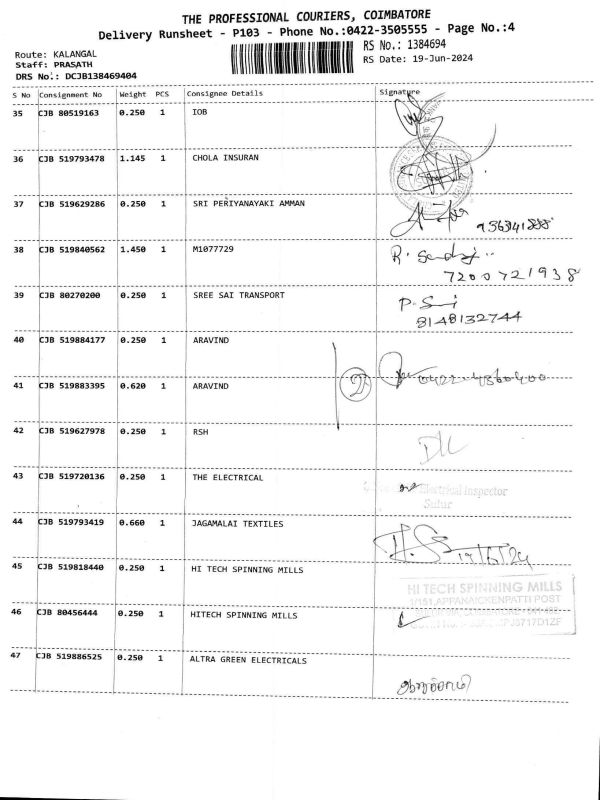 THE PROFESSIONAL COURIERS, COIMBATORE
Delivery Runsheet - P103 - Phone No.:0422-3505555 - Page No.:4
Route: KALANGAL
RS No.: 1384694
Staff: PRASATH
RS Date: 19-Jun-2024
DRS No.: DCJB138469404
S No Consignment No Weight PCS Consignee Details Signature
35 CJB 80519163 0.250 1 IOB
36 CJB 519793478 1.145 1 CHOLA INSURAN
37 CJB 519629286 0.250 1 SRI PERIYANAYAKI AMMAN
38 CJB 519840562 1.450 1 M1077729
7200721938
39 CJB 80270200 0.250 1 SREE SAI TRANSPORT
8148132744
40 CJB 519884177 0.250 1 ARAVIND
41 CJB 519883395 0.620 1 ARAVIND
42 CJB 519627978 0.250 1 RSH
43 CJB 519720136 0.250 1 THE ELECTRICAL
Electrical Inspector
Sulur
44 CJB 519793419 0.660 1 JAGAMALAI TEXTILES
19/6/24
45 CJB 519818440 0.250 1 HI TECH SPINNING MILLS
HI TECH SPINNING MILLS
APPANAICKENPATTI POST
46 CJB 80456444 0.250 1 HITECH SPINNING MILLS
47 CJB 519886525 0.250 1 ALTRA GREEN ELECTRICALS